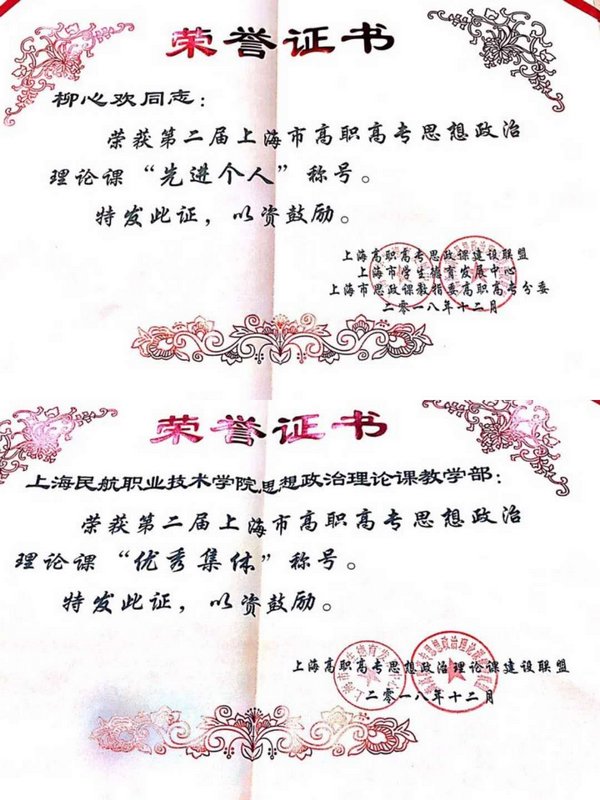 荣誉证书
柳心欢同志：
荣获第二届上海市高职高专思想政治
理论课“先进个人”称号。
特发此证，以资鼓励。
上海高职高专思政课建设联盟
上海市学生德育发展中心
上海市思政课教指委高职高专分委
二零一八年十二月
荣誉证书
上海民航职业技术学院思想政治理论课教学部：
荣获第二届上海市高职高专思想政治
理论课“优秀集体”称号。
特发此证，以资鼓励。
上海高职高专思想政治理论课建设联盟
二零一八年十二月